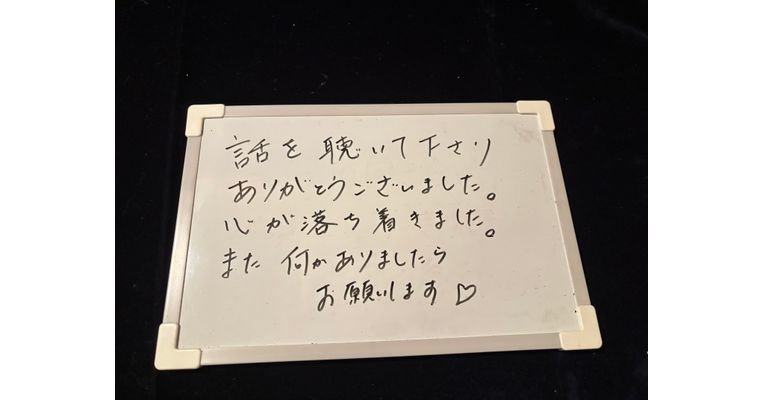 話を聴いて下さり
ありがとうございました。
心が落ち着きました。
また何かありましたら
お願いします♡